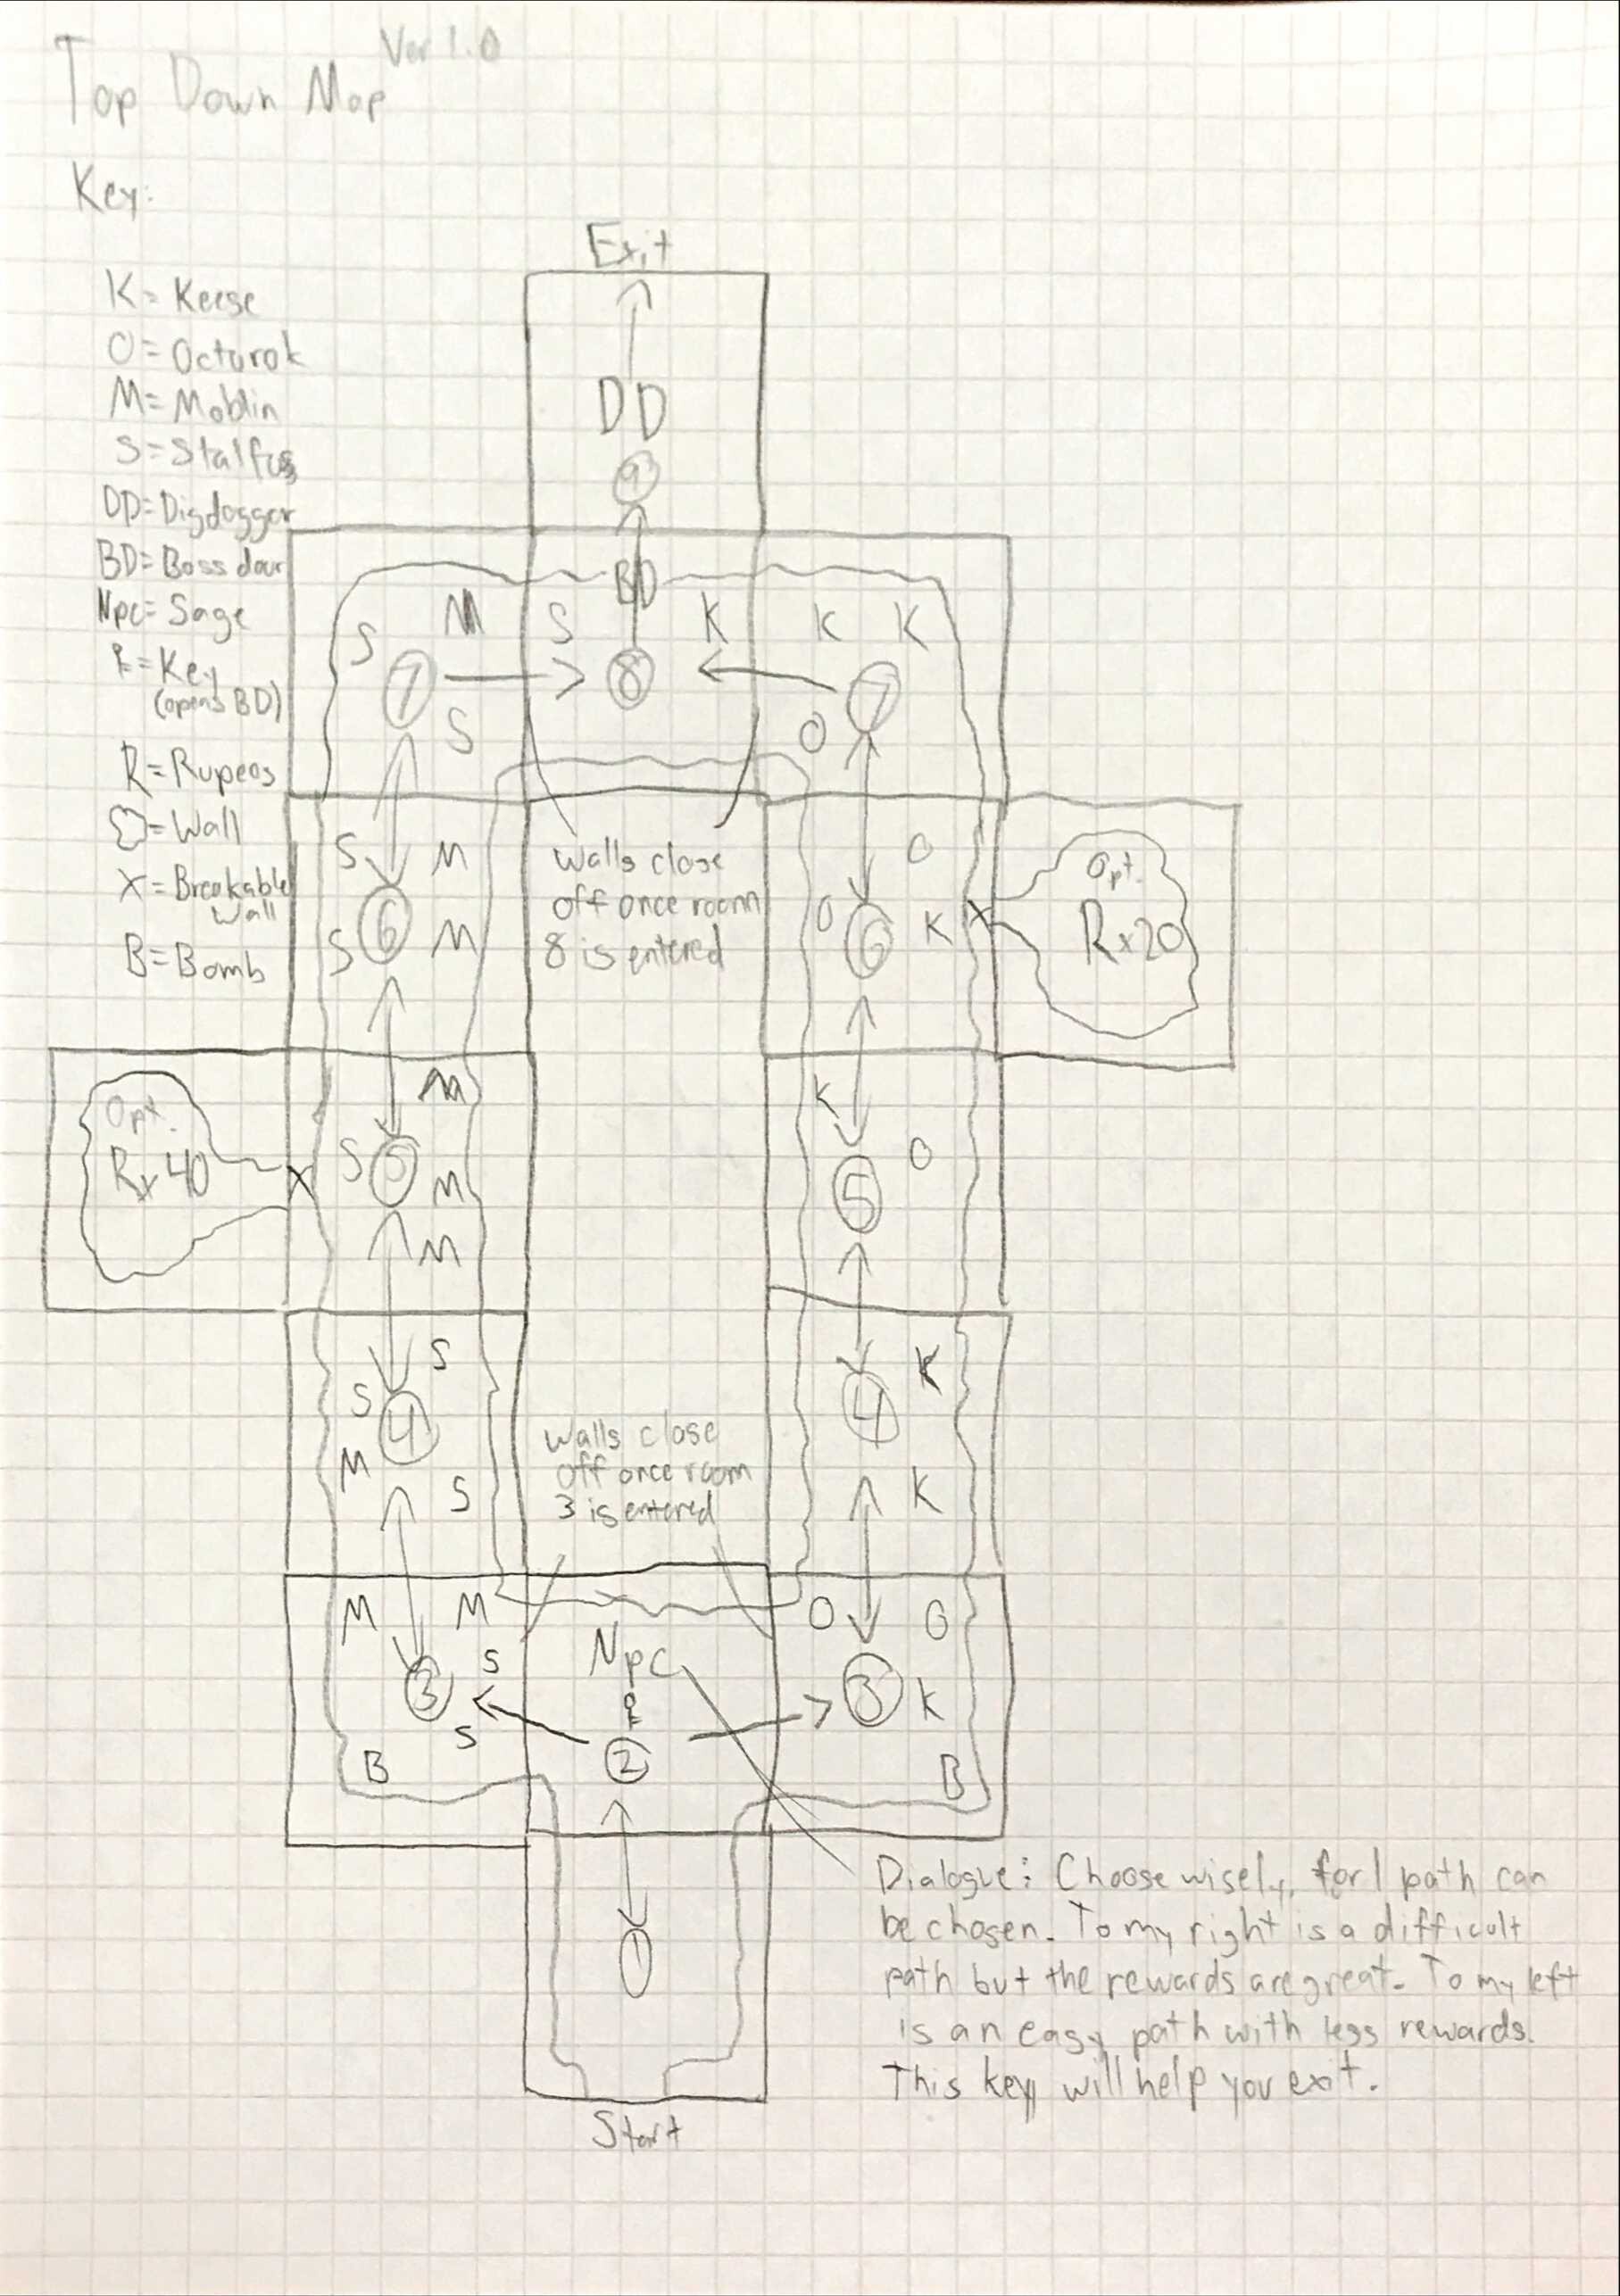 Ver 1.0
Top Down Map
Key:
K= Keese
O= Octorok
M= Moblin
S= Stalfos
DD= Digdogger
BD= Boss door
Npc= Sage
= Key
(opens BD)
R= Rupees
= Wall
X= Breakable
Wall
B= Bomb
Exit
DD
9
BD
S M S K K K
7 8 7
S O
S M O
6 O 6 K X
S M
Opt.
R x20
Walls close
off once room
8 is entered
M K
S 5 M O
M 5
Opt.
Rx 40
X
S K
S 4 4
M S K
Walls close
off once room
3 is entered
M M Npc O O
3 S 3 K
S 2
B B
1
Start
Dialogue: Choose wisely, for 1 path can
be chosen. To my right is a difficult
path but the rewards are great. To my left
is an easy path with less rewards.
This key will help you exit.